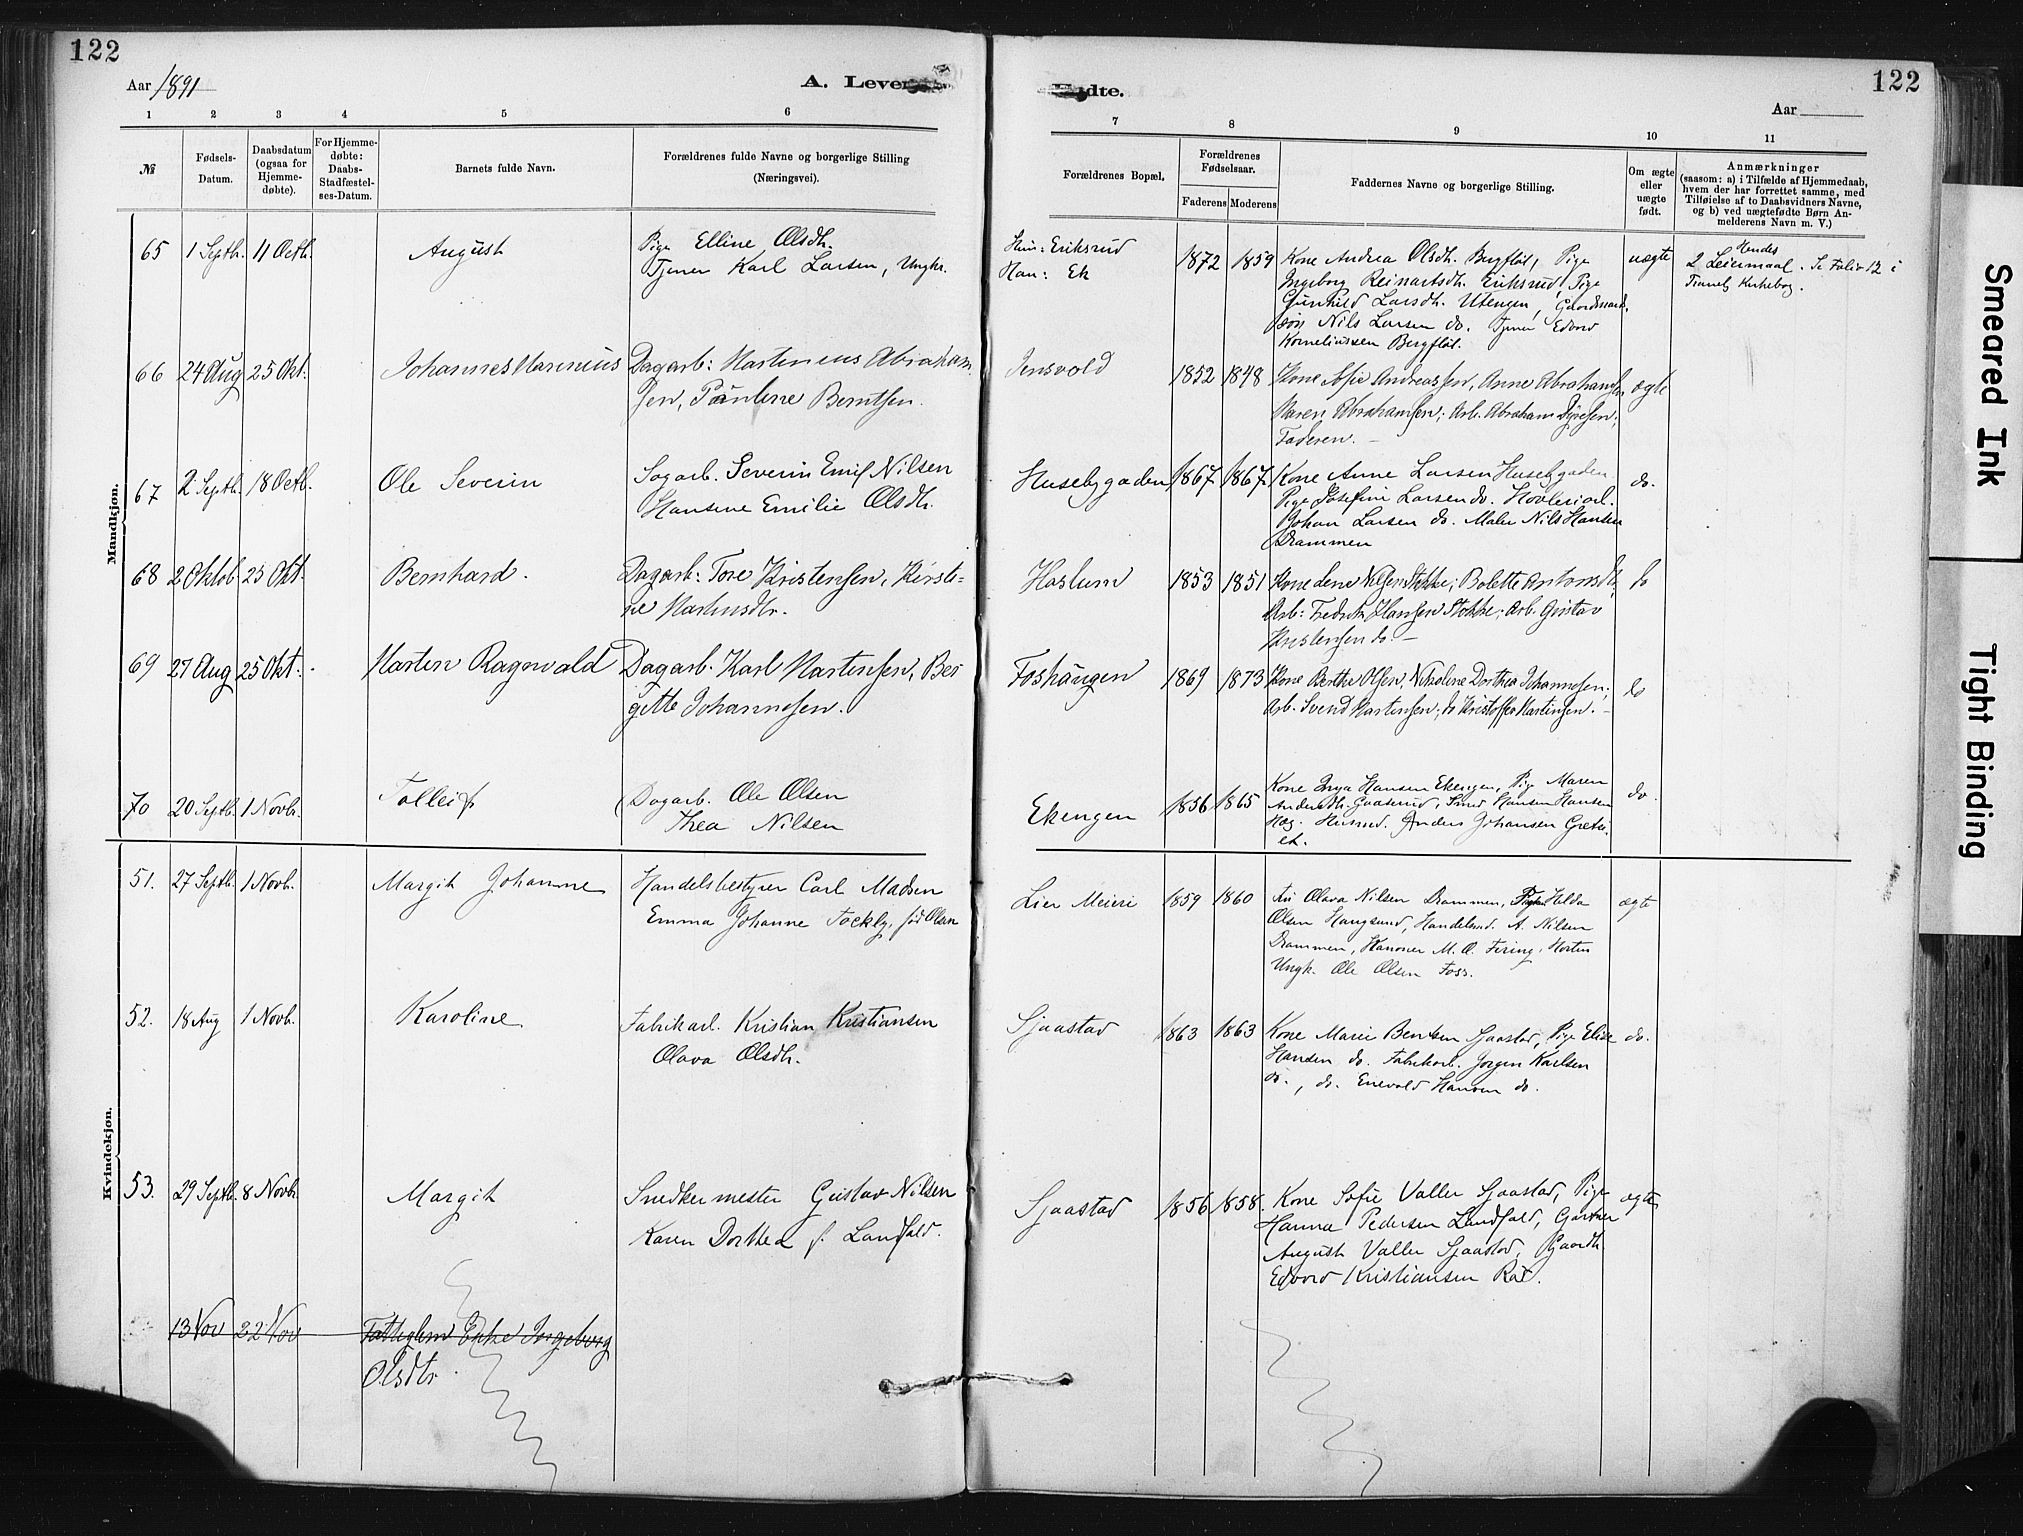 122
Aar 1891
A. Levende
1 2 3 4 5 6
№
Fødsels-
Datum.
Daabsdatum
(ogsaa for
Hjemme-
døbte).
For Hjemme-
døbte:
Daabs-
Stadfæstel-
ses-Datum.
Barnets fulde Navn.
Forældrenes fulde Navne og borgerlige Stilling
(Næringsvei).
Mandkjøn.
65 1 Septb. 11 Octb. August
Pige Elline Olsdtr.
Tjener Karl Larsen, Ungkr.
66 24 Aug 25 Okt. Johannes Marinius
Dagarb: Martinius Abraham
sen, Pauline Berntsen.
67 2 Septb. 18 Octb. Ole Severin
Sagarb. Severin Emil Nilsen
Hansine Emilie Olsdtr.
68 2 Oktob 25 Okt. Bernhard.
Dagarb: Tore Kristensen, Kirsti-
ne Martinsdtr.
69 27 Aug 25 Okt. Martin Ragnvald
Dagarb. Karl Martinsen, Ber
gitte Johannesen.
70 20 Septb. 1 Novb. Tolleif
Dagarb. Ole Olsen
Thea Nilsen
Kvindekjøn.
51. 27 Septb. 1 Novb. Margit Johanne
Handelsbestyrer Carl Madsen
Emma Johanne Fockly, fød Olsen
52. 18 Aug 1 Novb. Karoline
Fabrikarb. Kristian Kristiansen
Olava Olsdtr.
53. 29 Septb. 8 Novb. Margit
Snedkermester Gustav Nilsen
Karen Dorthea f. Landfald.
13 Nov 22 Nov Fattiglem Enke Ingeborg
Olsdtr
122
Fødte.
Aar
7 8 9 10 11
Forældrenes Bopæl.
Forældrenes
Fødselsaar.
Faderens Moderens
Faddernes Navne og borgerlige Stilling.
Om ægte
eller
uægte
født.
Anmærkninger
(saasom: a) i Tilfælde af Hjemmedaab,
hvem der har forrettet samme, med
Tilføielse af to Daabsvidners Navne,
og b) ved uægtefødte Børn An-
melderens Navn m. V.)
Hun: Eriksrud
Han: Ek
1872 1859
Kone Andrea Olsdtr. Bergfløt, Pige
Ingeborg Reinartsdtr. Eriksrud, Pige
Gunhild Larsdtr. Utengen, Gaardmands
søn Nils Larsen do. Tjener Edvard
Korneliussen Bergfløt.
uægte
Hendes
2 Leiermaal. Se Folio 12 i
Tranby Kirkebog.
Jensvold 1852 1848
Kone Sofie Andreassen, Anne Abrahamsen
Maren Abrahamsen; Arb. Abraham Syversen;
Faderen.
ægte
Husebygaden 1867 1867
Kone Anne Larsen Husebygaden
Pige Josefine Larsen do. Høvleriarb.
Johan Larsen do. Maler Nils Hansen
Drammen
do.
Haslum 1853 1851
Kone Lene Nilsen Stokke; Bolette Antonsdtr;
Arb: Fredrik Hansen Stokke; Arb. Gustav
Kristensen do.
do
Foshaugen 1869 1873
Kone Berthe Olsen, Nikoline Dorthea Johannesen;
Arb. Svend Martinsen; do Kristoffer Martinsen.
do
Ekengen 1856 1865
Kone Inga Hansen Ekengen, Pige Maren
Andersdtr. Gaaserud, Smed Hansen Hansen
Hæg. Husmd. Anders Johansen Greti-
et.
do.
Lier Meieri 1859 1860
Fru Olava Nilsen Drammen, Pige Hilda
Olsen Haugsund, Handelsmd. A. Nilsen
Drammen, Kanoner M. O. Firing, Horten
Ungk. Ole Olsen Foss.
ægte
Sjaastad 1863 1863
Kone Marie Bentsen Sjaastad, Pige Elise
Hansen do. Fabrikarb. Jørgen Karlsen
do., do. Enevold Hansen do.
do.
Sjaastad 1856 1858
Kone Sofie Valler Sjaastad, Pige
Hanna Pedersen Landfald, Gartner
August Valler Sjaastad, Gaardb.
Edvard Kristiansen Røe.
ægte
Smeared Ink
Tight Binding